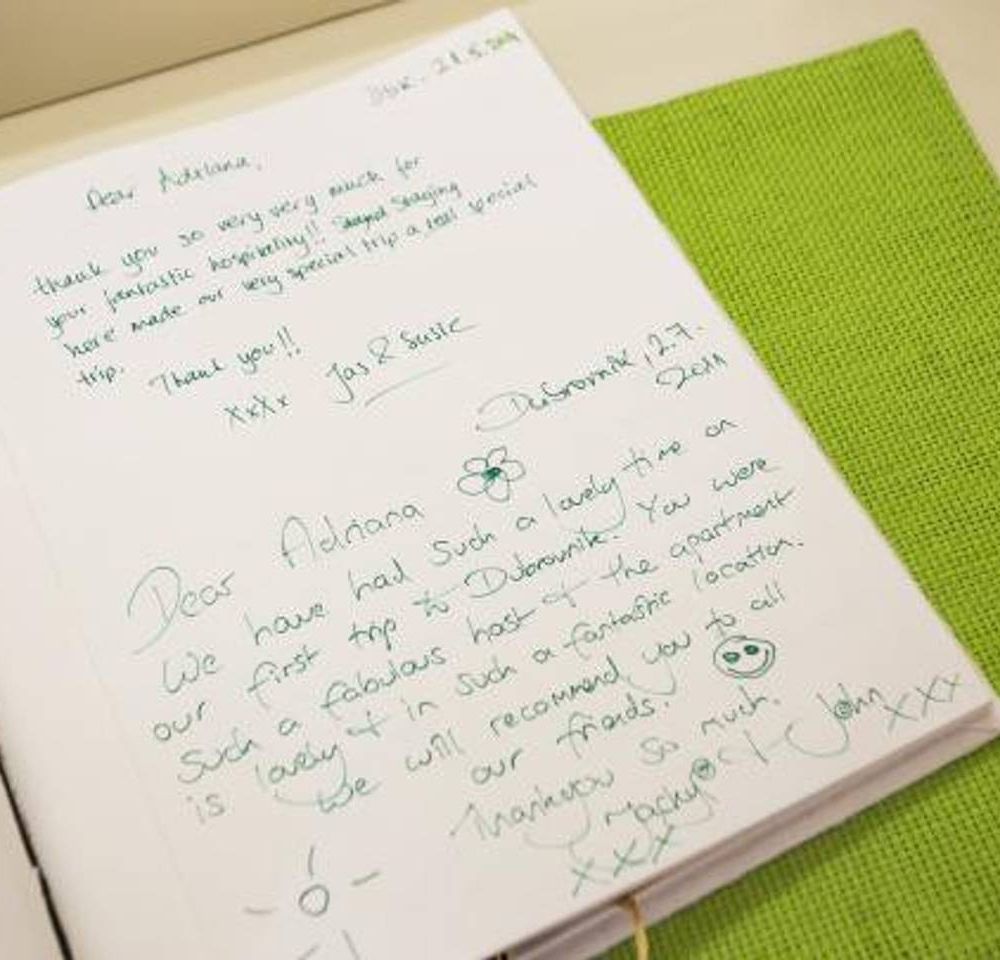 Dbk. 21.5.2011
Dear Adriana,
thank you so very very much for
your fantastic hospitality!! Staying
here made our very special trip a real special
trip.
Thank you!!
xxxx Jas & Susie
Dubrovnik, 2.7.
2011
Dear Adriana
We have had such a lovely time on
our first trip to Dubrovnik. You were
such a fabulous host + the apartment
is lovely + in such a fantastic location.
We will recommend you to all
our friends.
Thankyou so much.
John xxx
xxx